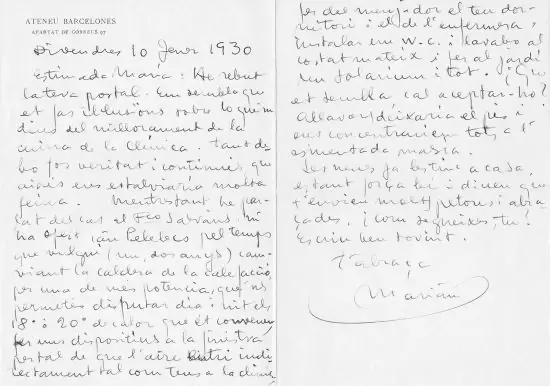 ATENEU BARCELONES
APARTAT DE CORREUS 97
Divendres 10 Jener 1930
Estimada Maria: He rebut
la teva postal. Em sembla que
et fas il·lusions sobre lo que'm
dius del millorament de la
cuina de la Clínica. Tant de
bo fos veritat i continués, que
així ens estalviaria molta
feina. Mentrestant he par-
lat del cas el Fco
ha ofert can pel temps
que vulgui (un, dos anys) can-
viant la caldera de la calefacció
per una de més potencia, que'ns
permetés disfrutar dia i nit els
18º o 20º de calor que et convenen,
fer uns dispositius a la finestra
postal de que l'aire entri indi-
rectament tal com tens a la clínica,
fer del menjador el teu dor-
mitori i el de l'enfermera,
instalar un W.C. i lavabo al
costat mateix i fer al jardí
un solarium i tot. ¿Què
et sembla cal aceptar-ho?
Allavors deixaria el pis i
ens concentrariem tots a l'
esmentada masia.
Les nenes ja les tinc a casa,
estant força bé i diuen que
t'envien molts petons i abra-
çades, i com segueixes, tu?
Escriu ben sovint.
T'abraça
Marian